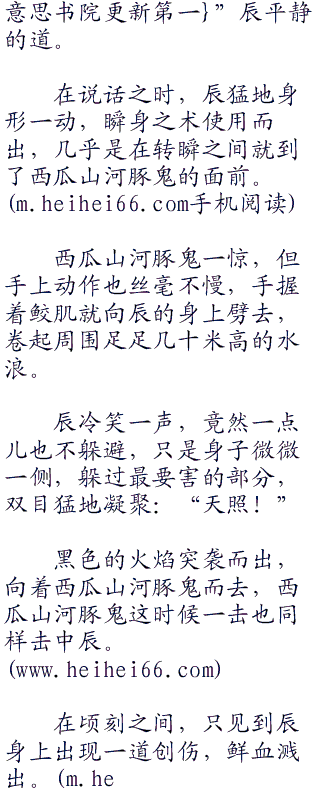 意思书院更新第一}”辰平静
的道。
在说话之时，辰猛地身
形一动，瞬身之术使用而
出，几乎是在转瞬之间就到
了西瓜山河豚鬼的面前。
(m.heihei66.com手机阅读)
西瓜山河豚鬼一惊，但
手上动作也丝毫不慢，手握
着鲛肌就向辰的身上劈去，
卷起周围足足几十米高的水
浪。
辰冷笑一声，竟然一点
儿也不躲避，只是身子微微
一侧，躲过最要害的部分，
双目猛地凝聚：“天照！”
黑色的火焰突袭而出，
向着西瓜山河豚鬼而去，西
瓜山河豚鬼这时候一击也同
样击中辰。
(www.heihei66.com)
在顷刻之间，只见到辰
身上出现一道创伤，鲜血溅
出。(m.he